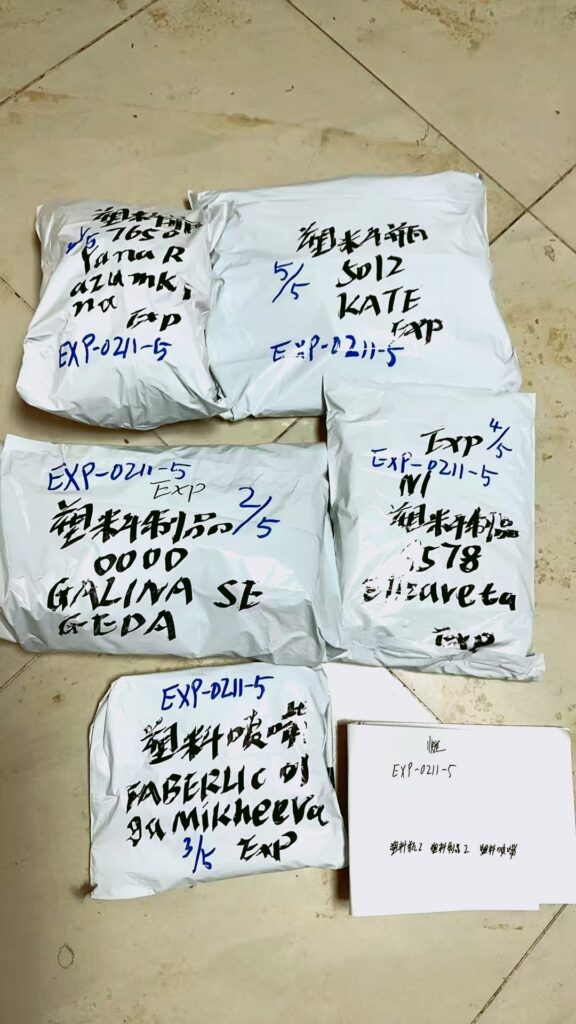 塑料瓶
1/5
7650
Yana R
azumki
na
Exp
EXP-0211-5
塑料瓶
5/5
5012
KATE
Exp
EXP-0211-5
EXP-0211-5
Exp
2/5
塑料制品
0000
GALINA SE
GEDA
Exp 4/5
EXP-0211-5
塑料制品
578
Elizaveta
Exp
EXP-0211-5
塑料喷嘴
FABERLIC Ol
ga Mikheeva
3/5 Exp
EXP-0211-5
塑料瓶2 塑料制品2 塑料喷嘴